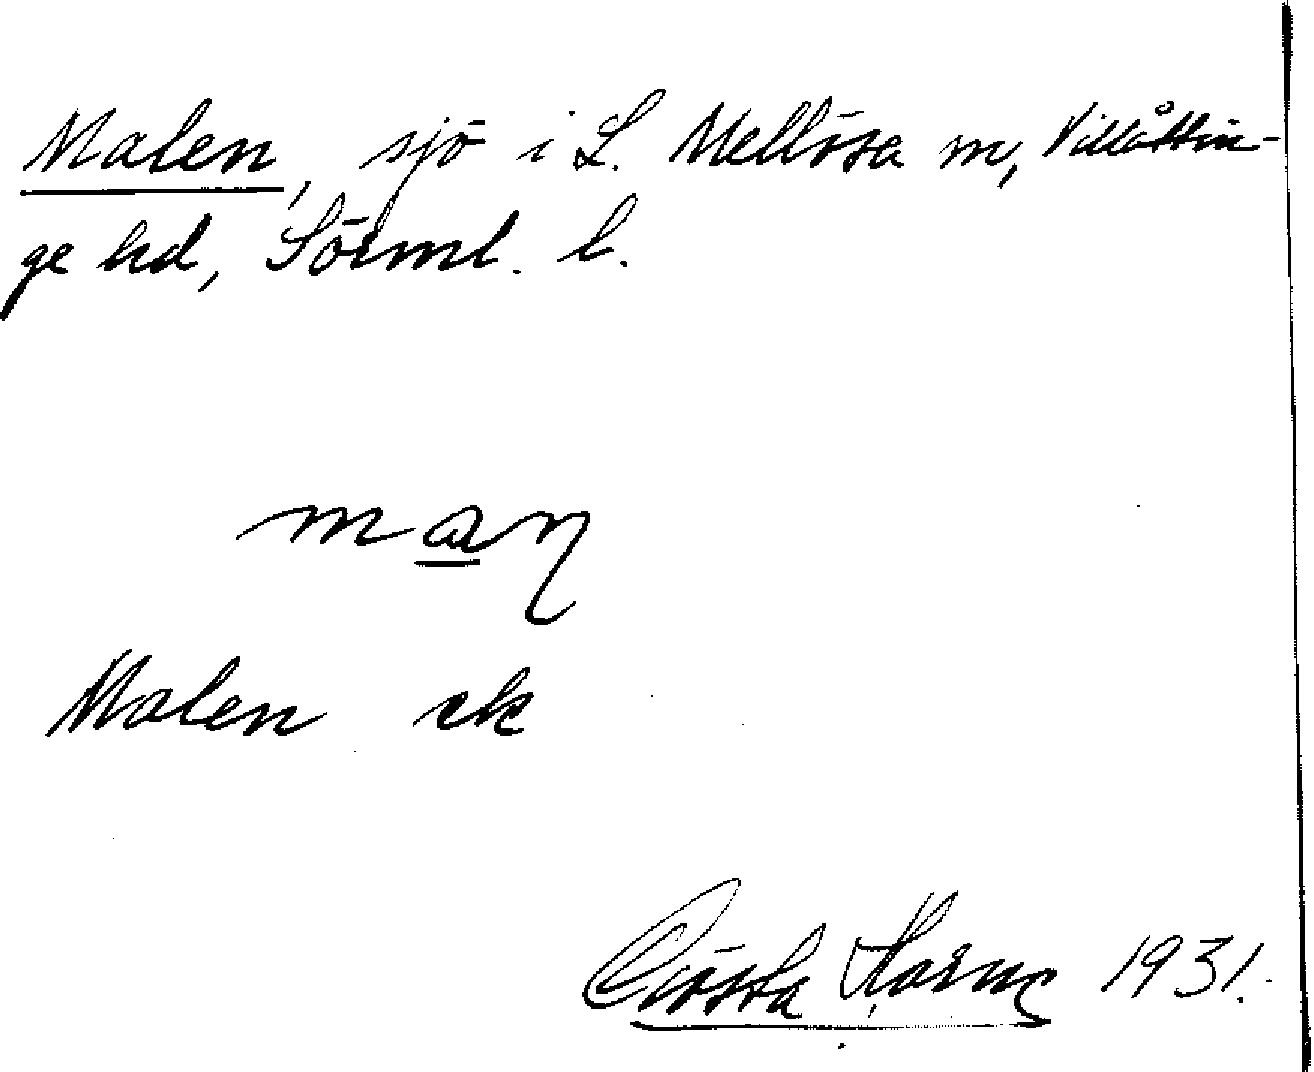 Malen, sjö i L. Mellösa sn, Villåttin-
ge hd, Sörml. l.
maɳ
Malen ek
Gösta 1931.